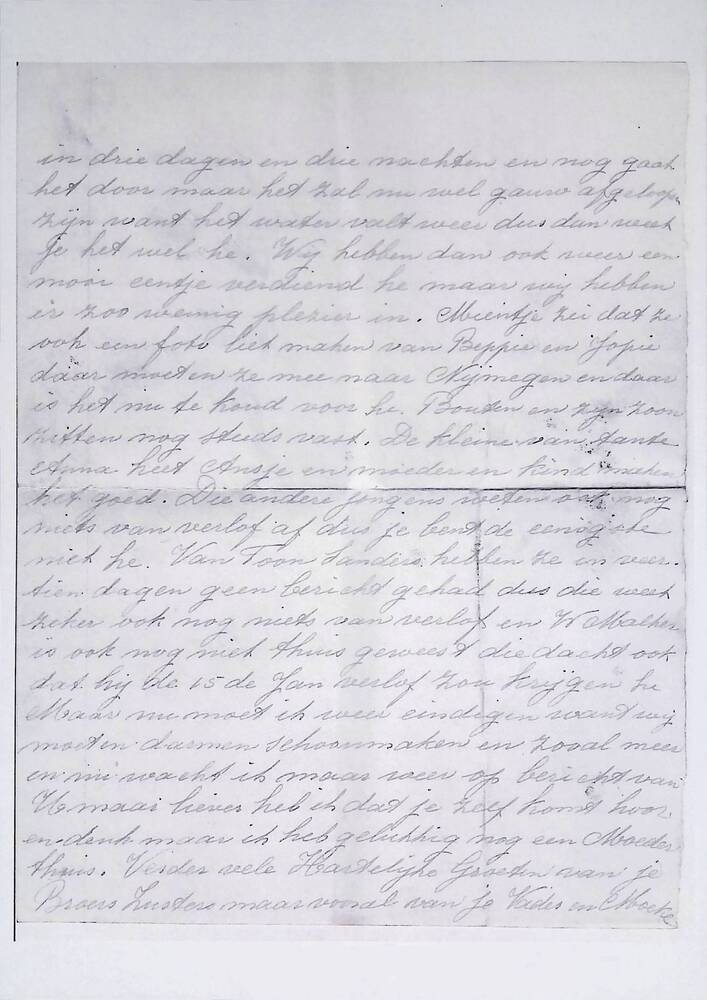 in drie dagen en drie nachten en nog gaat
het door maar het zal nu wel gauw afgeloopen
zijn want het water valt weer dus dan weet
je het wel he. Wij hebben dan ook weer een
mooi eentje verdiend he maar wij hebben
er zoo weinig plezier in. Mientje zei dat ze
ook een foto liet maken van Beppie en Jopie
daar moeten ze mee naar Nijmegen en daar
is het nu te koud voor he. Bouten en zijn zoon
zitten nog steeds vast. De kleine van tante
Anna heet Ansje en moeder en kind maken
het goed. Die andere jongens weten ook nog
niets van verlof af dus je bent de eenigste
niet he. Van Toon Sanders hebben ze in veer-
tien dagen geen bericht gehad dus die weet
zeker ook nog niets van verlof en W
is ook nog niet thuis geweest die dacht ook
dat hij de 15 de Jan verlof zou krijgen he
Maar nu moet ik weer eindigen want wij
moeten darmen schoonmaken en zooal meer
en nu wacht ik maar weer op bericht van
U maar liever heb ik dat je zelf komt hoor.
en denk maar ik heb gelukkig nog een Moeder
thuis. Verder vele Hartelijke Groeten van je
Broers Zusters maar vooral van je Vader en Moeke